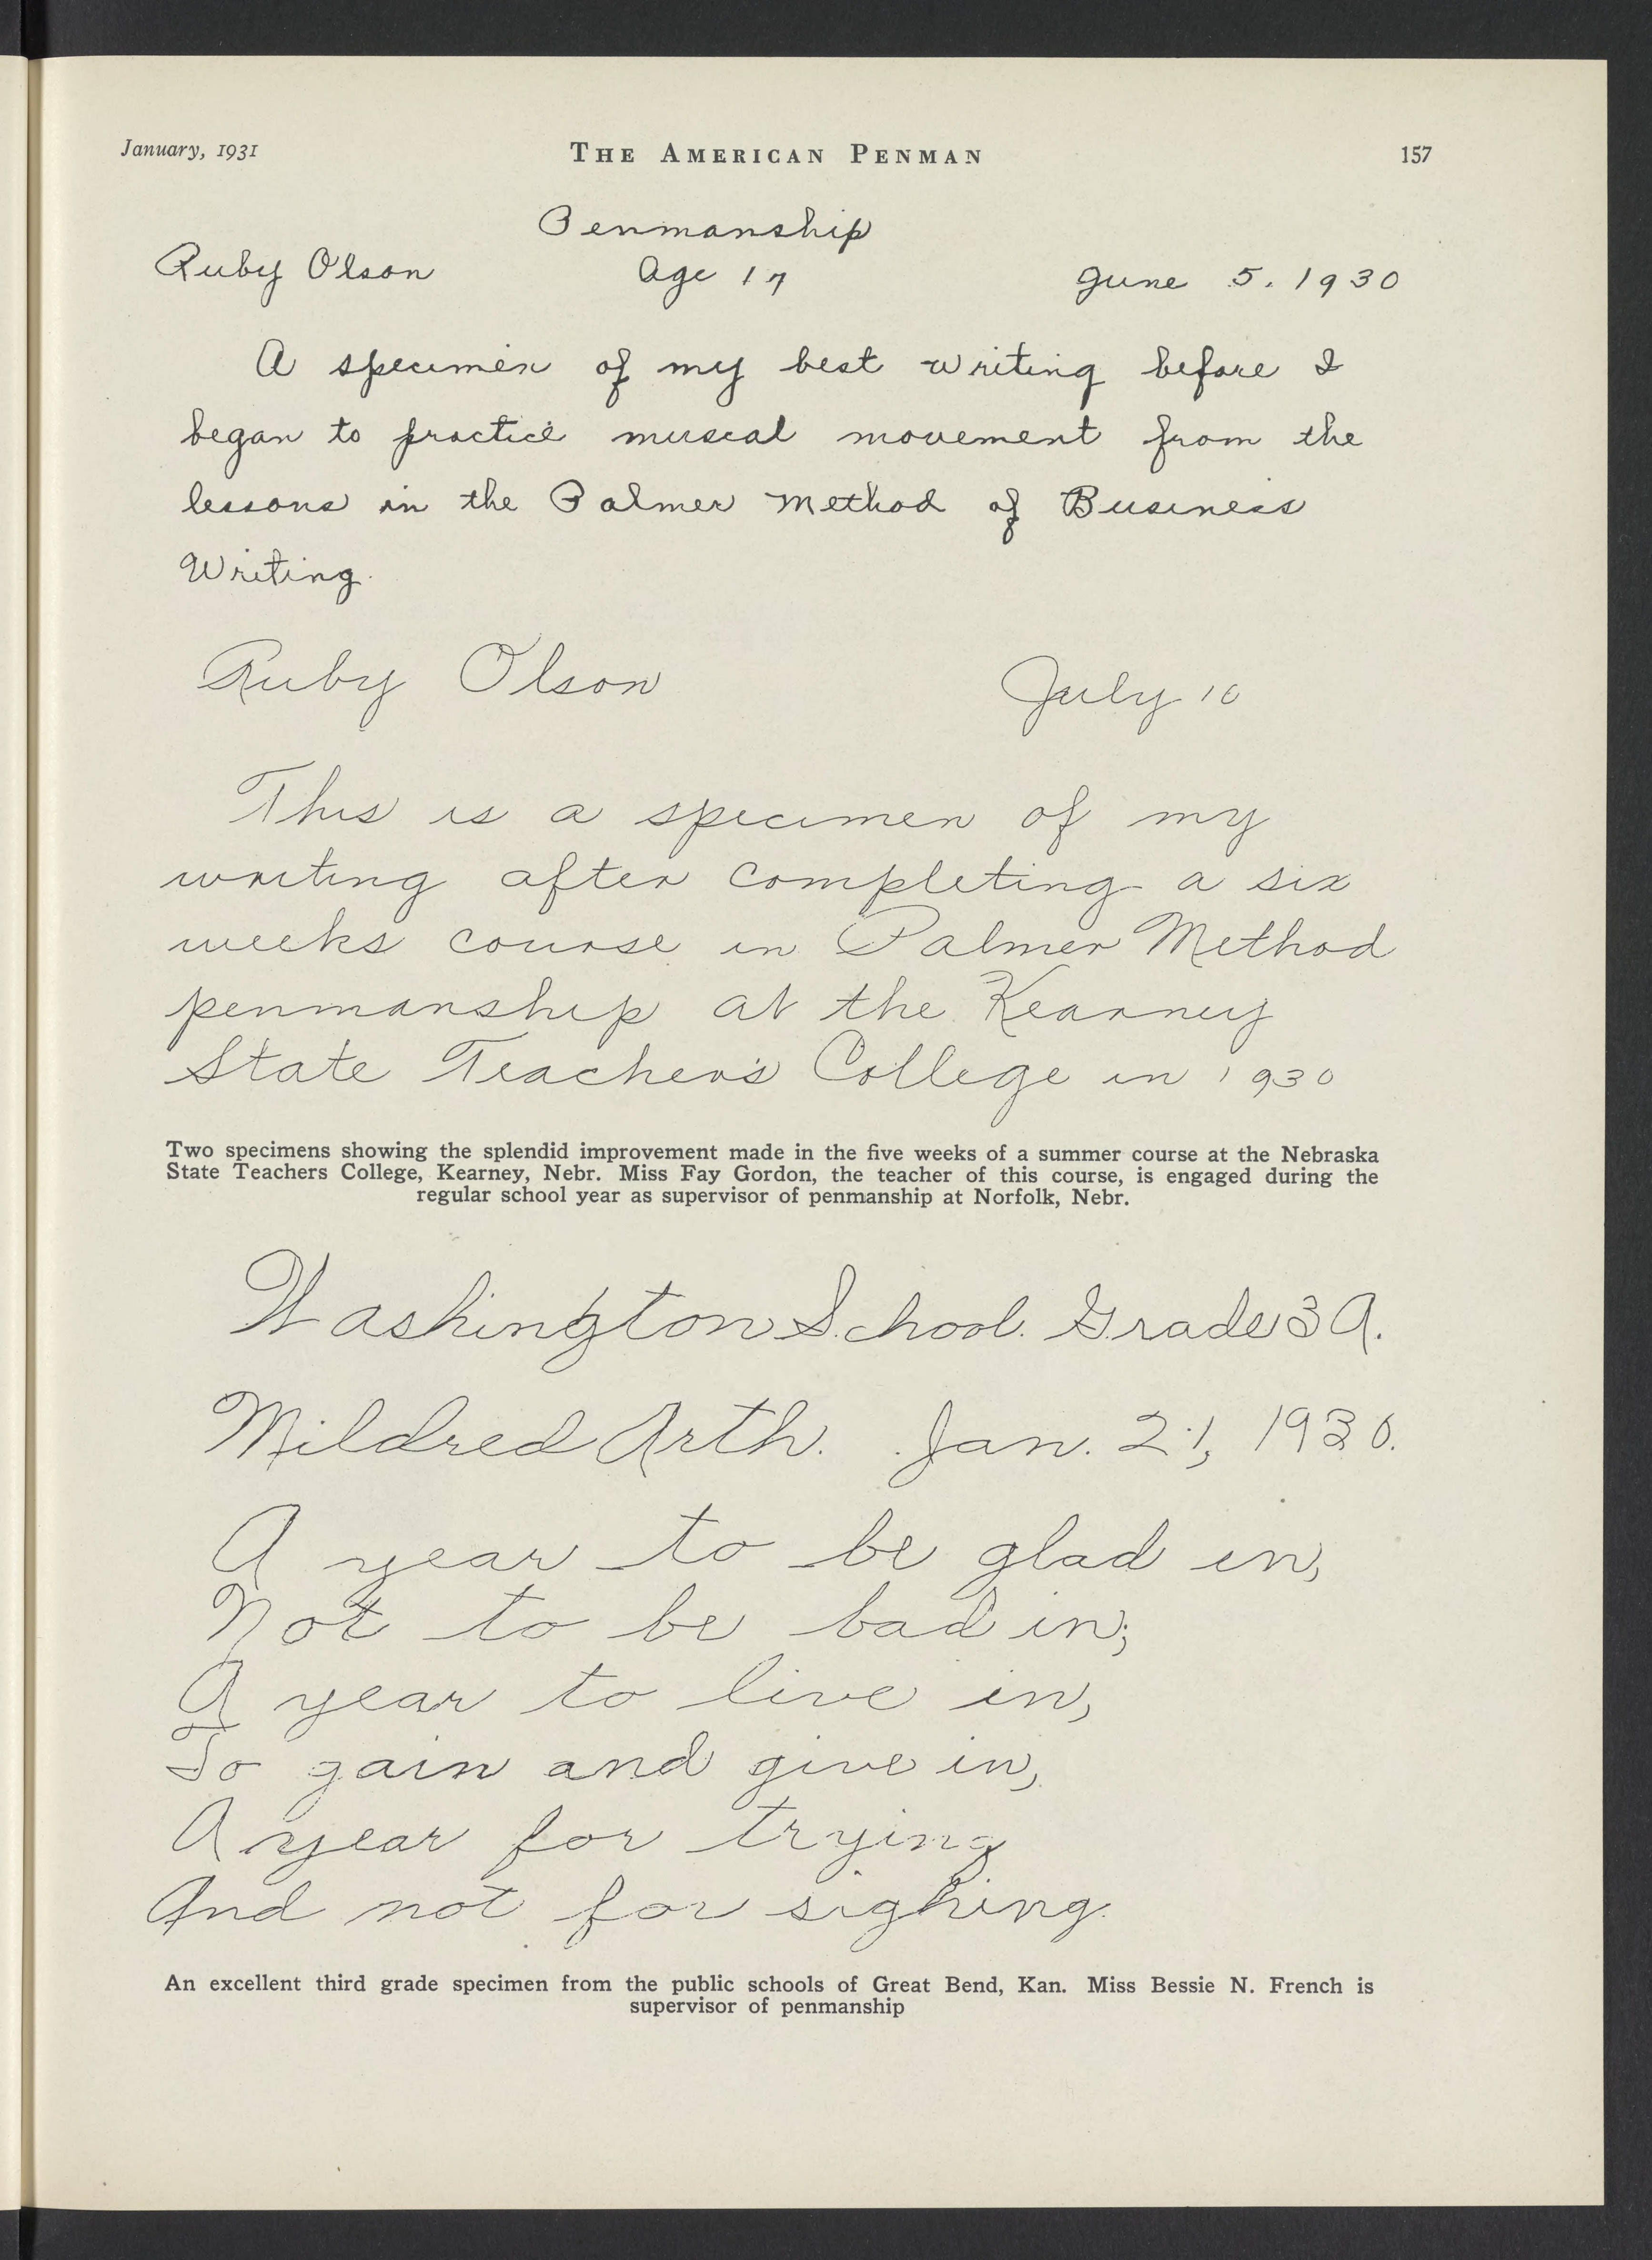 January, 1931 THE AMERICAN PENMAN 157
Penmanship
Ruby Olson Age 17 June 5, 1930
A specimen of my best writing before I
began to practice muscal movement from the
lessons in the Palmer Method of Business
Writing.
Ruby Olson July 10
This is a specimen of my
writing after completing a six
weeks course in Palmer Method
penmanship at the Kearney
State Teacher's College in 1930
Two specimens showing the splendid improvement made in the five weeks of a summer course at the Nebraska
State Teachers College, Kearney, Nebr. Miss Fay Gordon, the teacher of this course, is engaged during the
regular school year as supervisor of penmanship at Norfolk, Nebr.
Washington School. Grade 3A.
Mildred Arth. Jan. 21, 1930.
A year to be glad in,
Not to be bad in;
A year to live in,
To gain and give in,
A year for trying
And not for sighing.
An excellent third grade specimen from the public schools of Great Bend, Kan. Miss Bessie N. French is
supervisor of penmanship